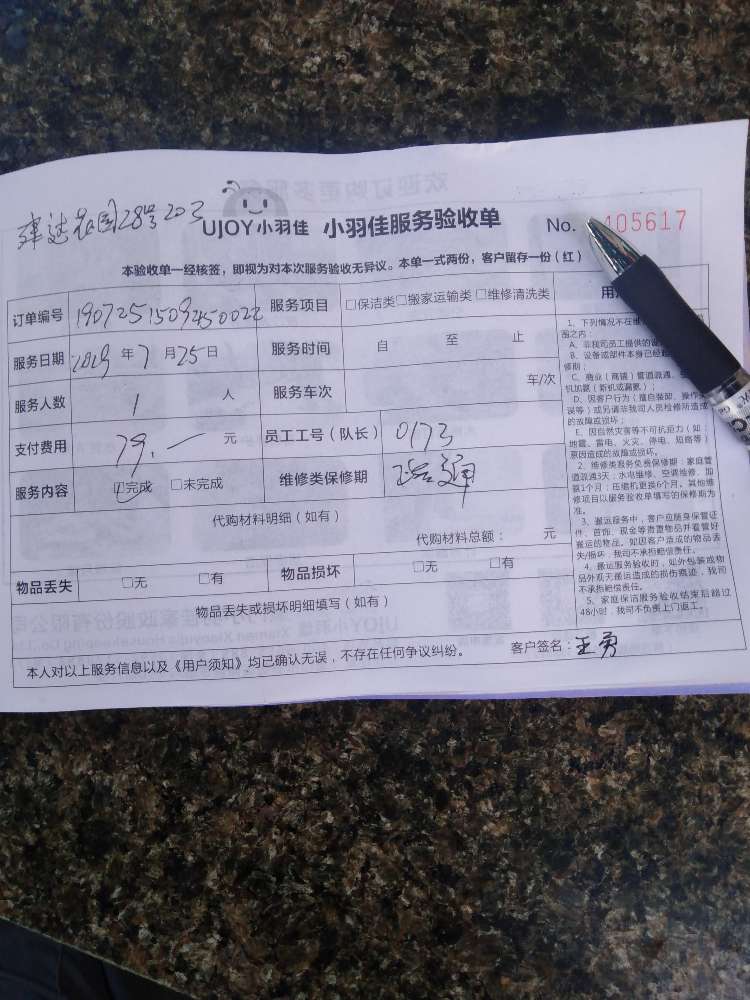 28号203
UJOY小羽佳 小羽佳服务验收单 No. 405617
本验收单一经核签，即视为对本次服务验收无异议。本单一式两份，客户留存一份（红）
订单编号 服务项目 □保洁类□搬家运输类□维修清洗类
服务日期 2019 年 7 月 25 日 服务时间 自 至 止
服务人数 1 人 服务车次 车/次
支付费用 79. 元 员工工号（队长） 0173
服务内容 □完成 □未完成 维修类保修期 通
代购材料明细（如有）
代购材料总额： 元
物品丢失 □无 □有 物品损坏 □无 □有
物品丢失或损坏明细填写（如有）
本人对以上服务信息以及《用户须知》均已确认无误，不存在任何争议纠纷。 客户签名：王勇
用
1、下列情况不在维
围之内：
A、非我司员工提供的设
B、设备或部件本身已经
修期；
C、商业（商铺）管道疏通、
机加氟（新机或漏氟）；
D、因客户行为（擅自装卸、操作
误等）或另请非我司人员检修所造成
的故障或损坏；
E、因自然灾害等不可抗力（如：
地震、雷电、火灾、停电、短路等）
原因造成的故障或损坏。
2、维修类服务免责保修期：家庭管
道疏通3天；水电维修、空调检修、加
氟1个月；压缩机更换6个月。其他维
修项目以服务验收单填写的保修期为
准。
3、搬运服务中，客户应随身保管证
件、首饰、现金等贵重物品并看管好
搬运的物品。如因客户造成的物品丢
失/损坏，我司不承担赔偿责任。
4、搬运服务验收时，如外包装或物
品外观无搬运造成的损伤痕迹，我司
不承担赔偿责任。
5、家庭保洁服务验收结束后超过
48小时，我司不负责上门返工。